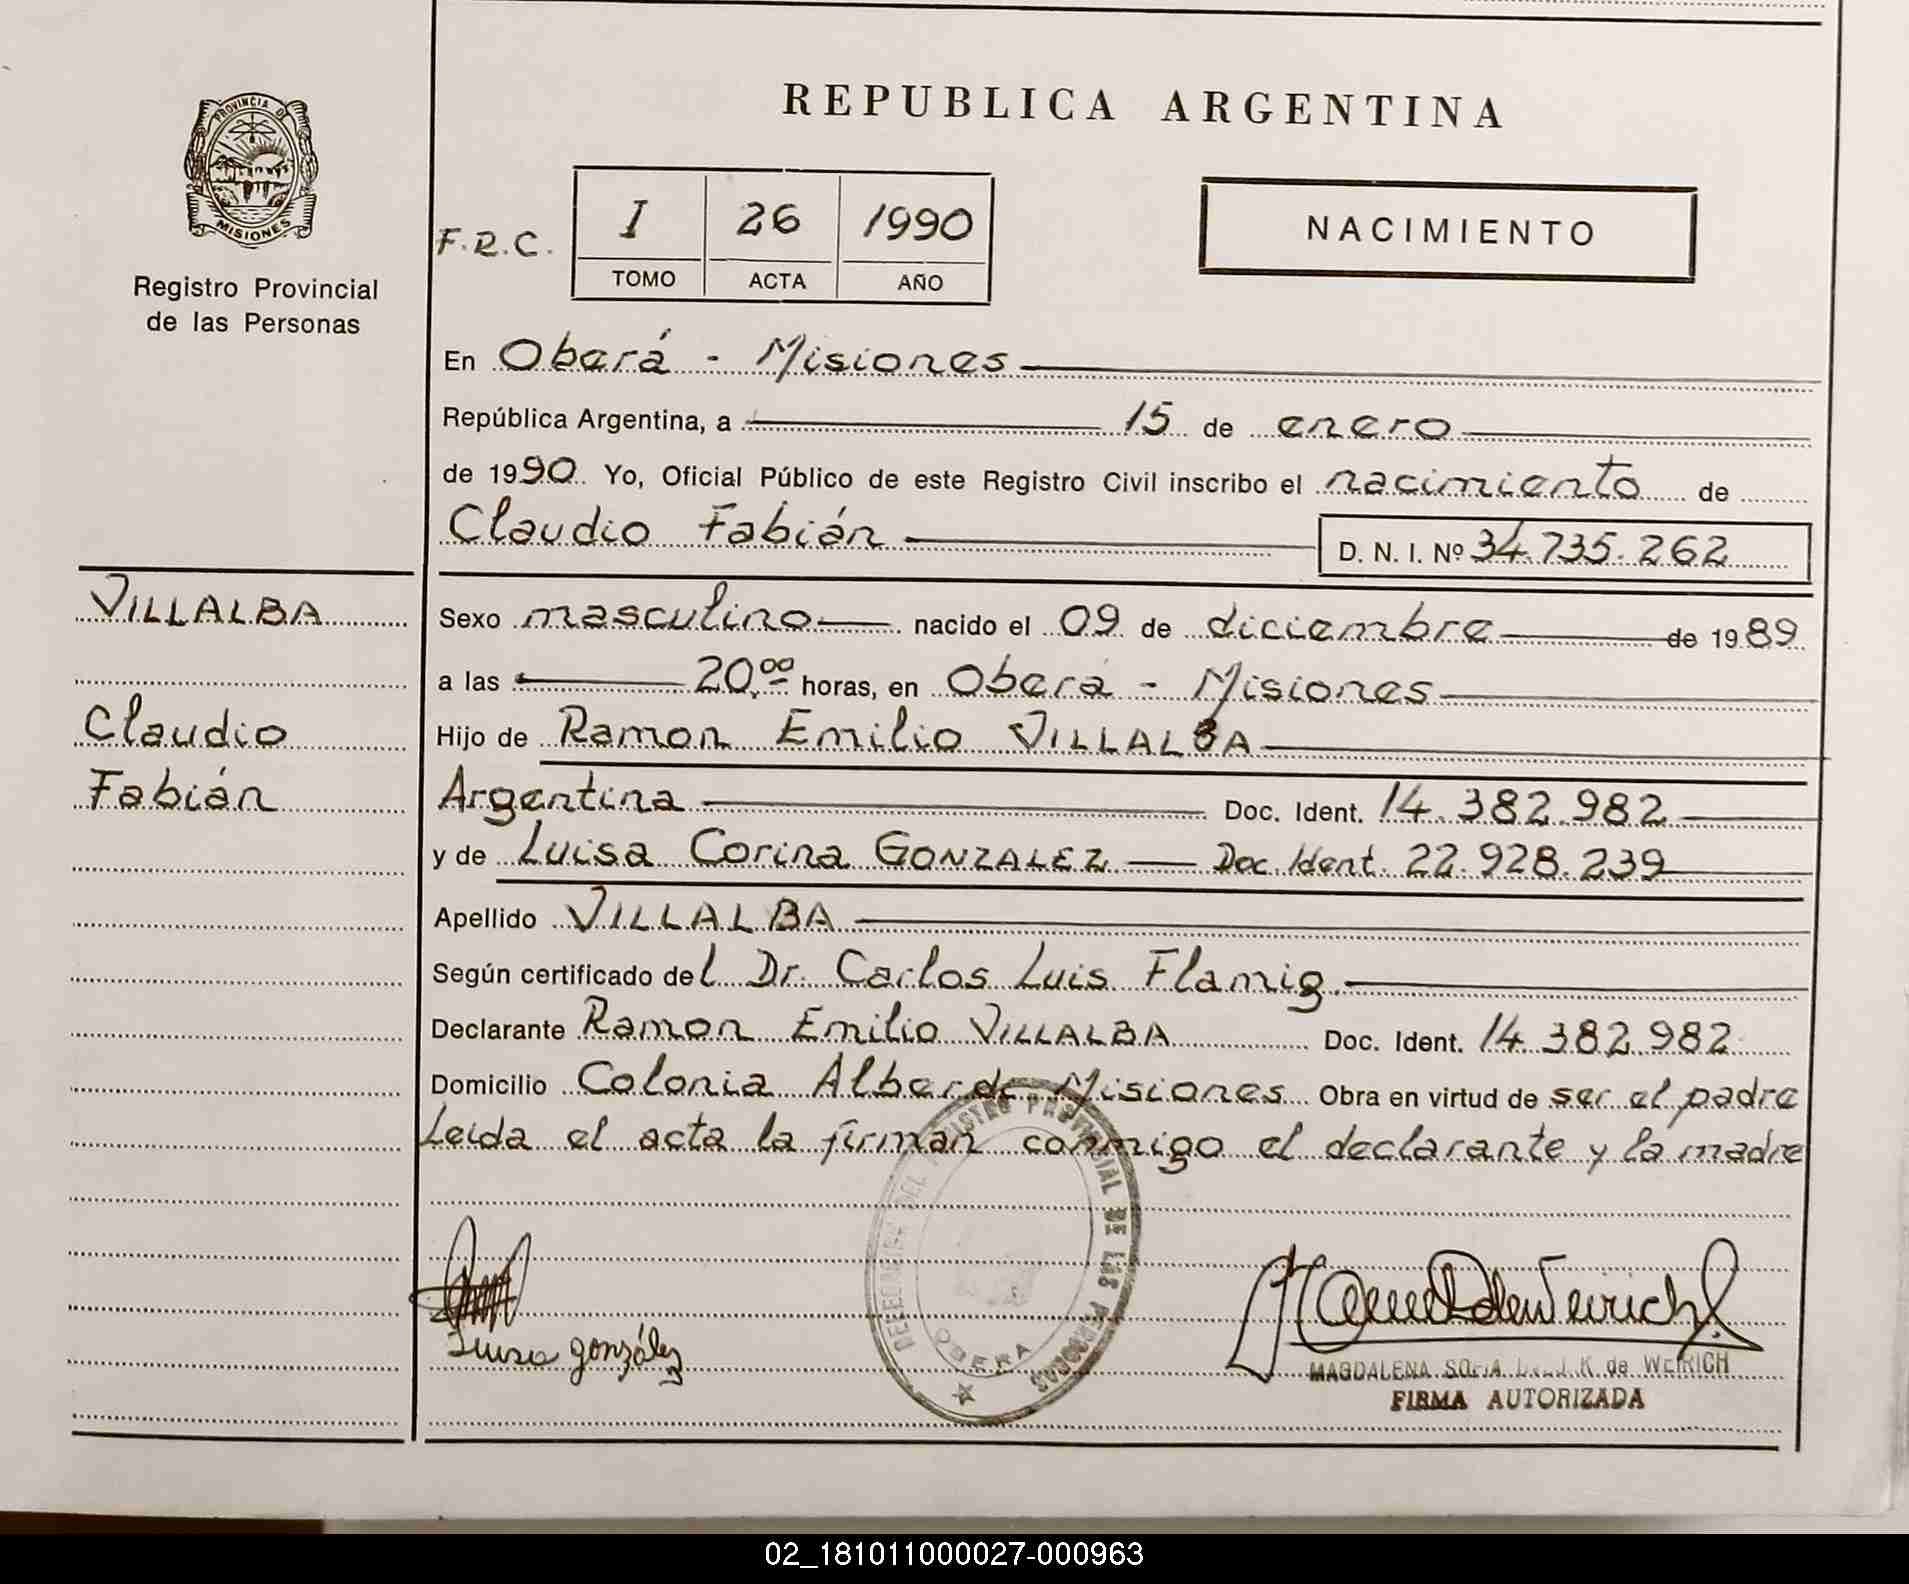 REPUBLICA ARGENTINA
PROVINCIA DE
MISIONES
Registro Provincial
de las Personas
F.R.C.
I 26 1990
TOMO ACTA AÑO
NACIMIENTO
En Oberá - Misiones
República Argentina, a 15 de enero
de 1990. Yo, Oficial Público de este Registro Civil inscribo el nacimiento de
Claudio Fabián D. N. I. Nº 34.735.262
VILLALBA
Claudio
Fabián
Sexo masculino nacido el 09 de diciembre de 1989
a las 20,00 horas, en Oberá - Misiones
Hijo de Ramon Emilio VILLALBA
Argentina Doc. Ident. 14.382.982
y de Luisa Corina GONZALEZ Doc. Ident. 22.928.239
Apellido VILLALBA
Según certificado del Dr. Carlos Luis Flamig.
Declarante Ramon Emilio VILLALBA Doc. Ident. 14.382.982
Domicilio Colonia Alberdi Misiones Obra en virtud de ser el padre
Leida el acta la firman conmigo el declarante y la madre
Luisa gonzález
DELEGACION DEL REGISTRO PROVINCIAL DE LAS PERSONAS
OBERA
MAGDALENA SOFIA K. de WEIRICH
FIRMA AUTORIZADA
02_181011000027-000963